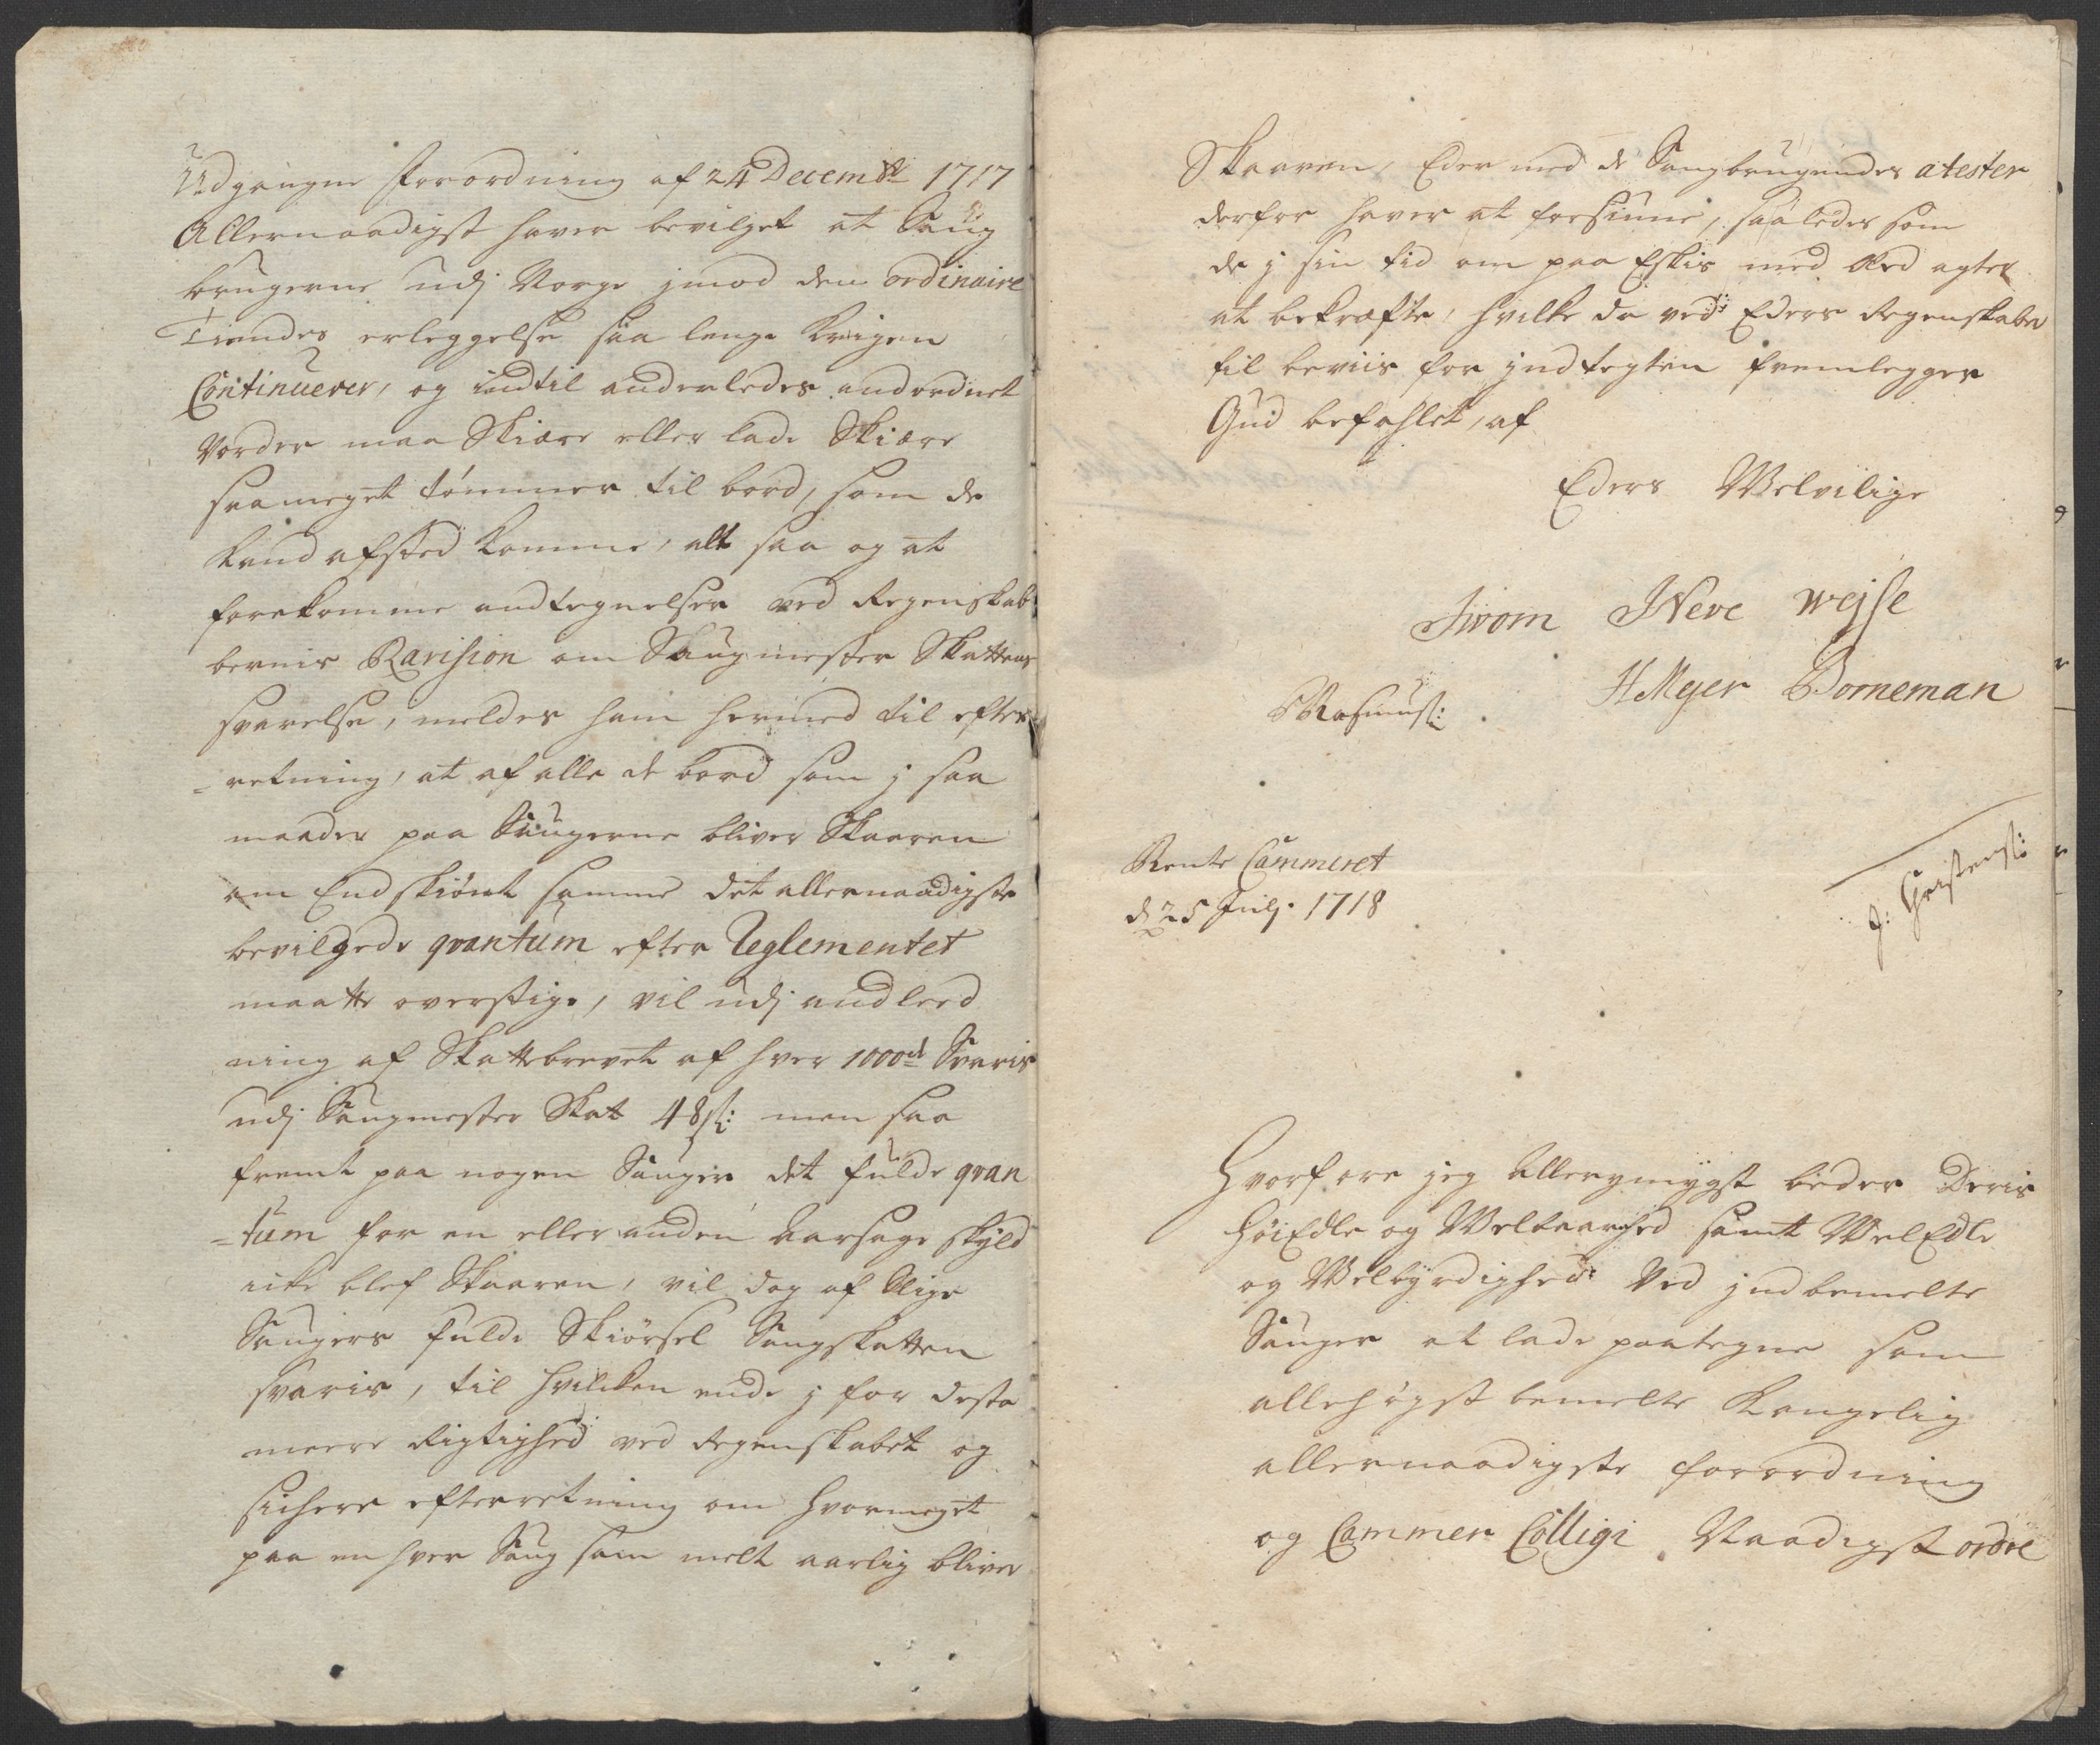 Udgangne Forordning af 24 Decembr 1717
Allernaadigst haver bevilget at Saug
brugerne udj Norge jmod den ordinaire
Tiendes erleggelse saa lenge Krigen
Continuerer, og indtil anderledes andordnet
Vorder maa Skiære eller lade Skiære
saameget tømmer til bord, som de
kand afsted komme, alt saa og at
forekomme andtegnelser ved Regenskab
bernis Revision om Saugmester Skattens
svarelse, meldes ham hermed til efter
-retning, at af alle de bord som j saa
maader paa Saugerne bliver Skaaren
om Endskiønt samme det allernaadigste
bevilgede qvantum efter Reglementet
maatte overstige, vil udj andleed
ning af Skattebrevet af hver 1000d Svaris
udj Saugmester Skat 48 sk: men saa
fremt paa nogen Sauger det fulde qvan
-tum for en eller anden aarsage skyld
icke blef Skaaren, vil dog af slige
Saugers fulde Skiørsel Saugskatten
svaris, til hvilcken ende j for desto
meere Rigtighed ved Regenskabet og
sichere efterretning om hvormeget
paa en hver Saug som melt aarlig bliver
Skaaren, Eder med de Saugbrugendes atester
derfor haver at forsiune, saaledes som
de j sin tid om paa Eskis med Eed agter
at bekræfte, hvilke da ved Eders Regenskaber
til beviis for jndtegten fremlegges
Gud befahlet, af
Eders Welvilige
Jwom Neve wejse
HMeyer Borneman
Rasmus:
Rente Cammeret
d 25 Julj. 1718
J: Christens:
Hvorfore jeg Allerymygst beder Deris
HøiEdle og Welbaarhed samt WelEdle
og Welbyrdighed: Ved jndbemelte
Sauger at lade paategne som
allehøgst bemelte Kongelig
allernaadigste forordning
og Cammer Colligi Naadigst ordre